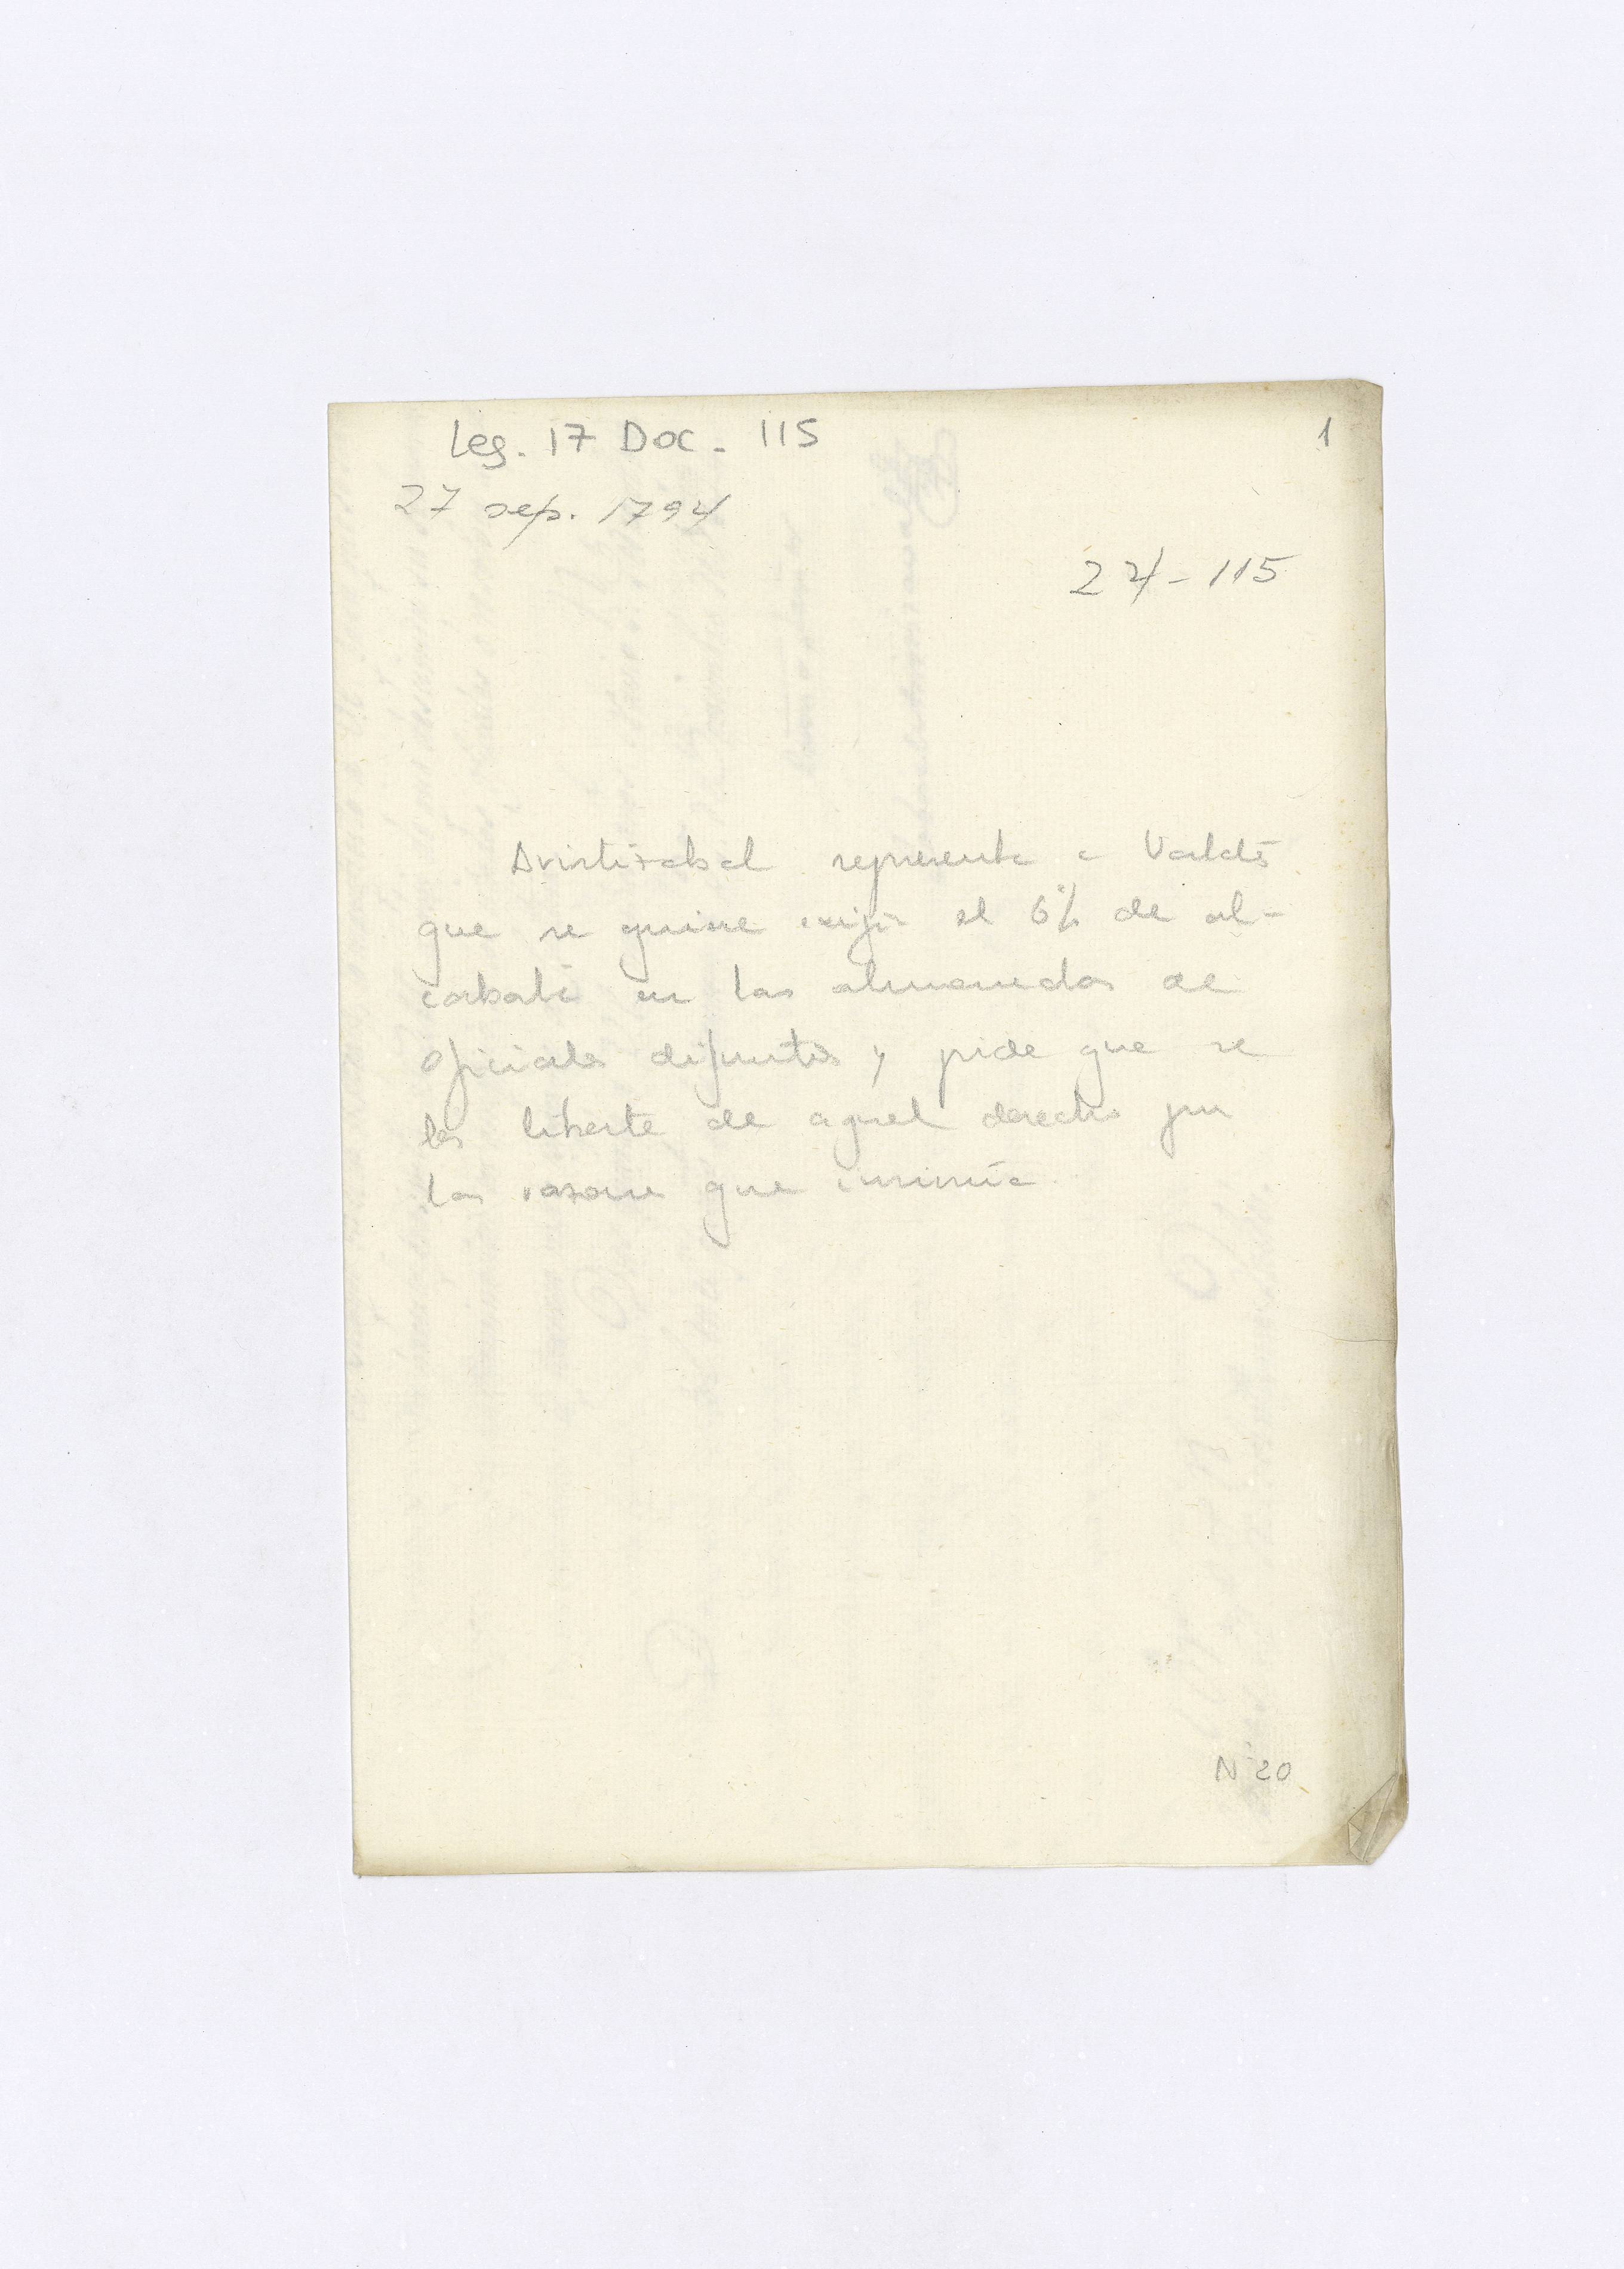 Leg. 17 Doc. 115
1
27 sep. 1794
24-115
Aristizabal representa a Valdés
que se quiere exijir el 6% de al-
cabala en las almonedas de
oficiales difuntos y pide que se
les liberte de aquel derecho por
las razones que
Nº 20